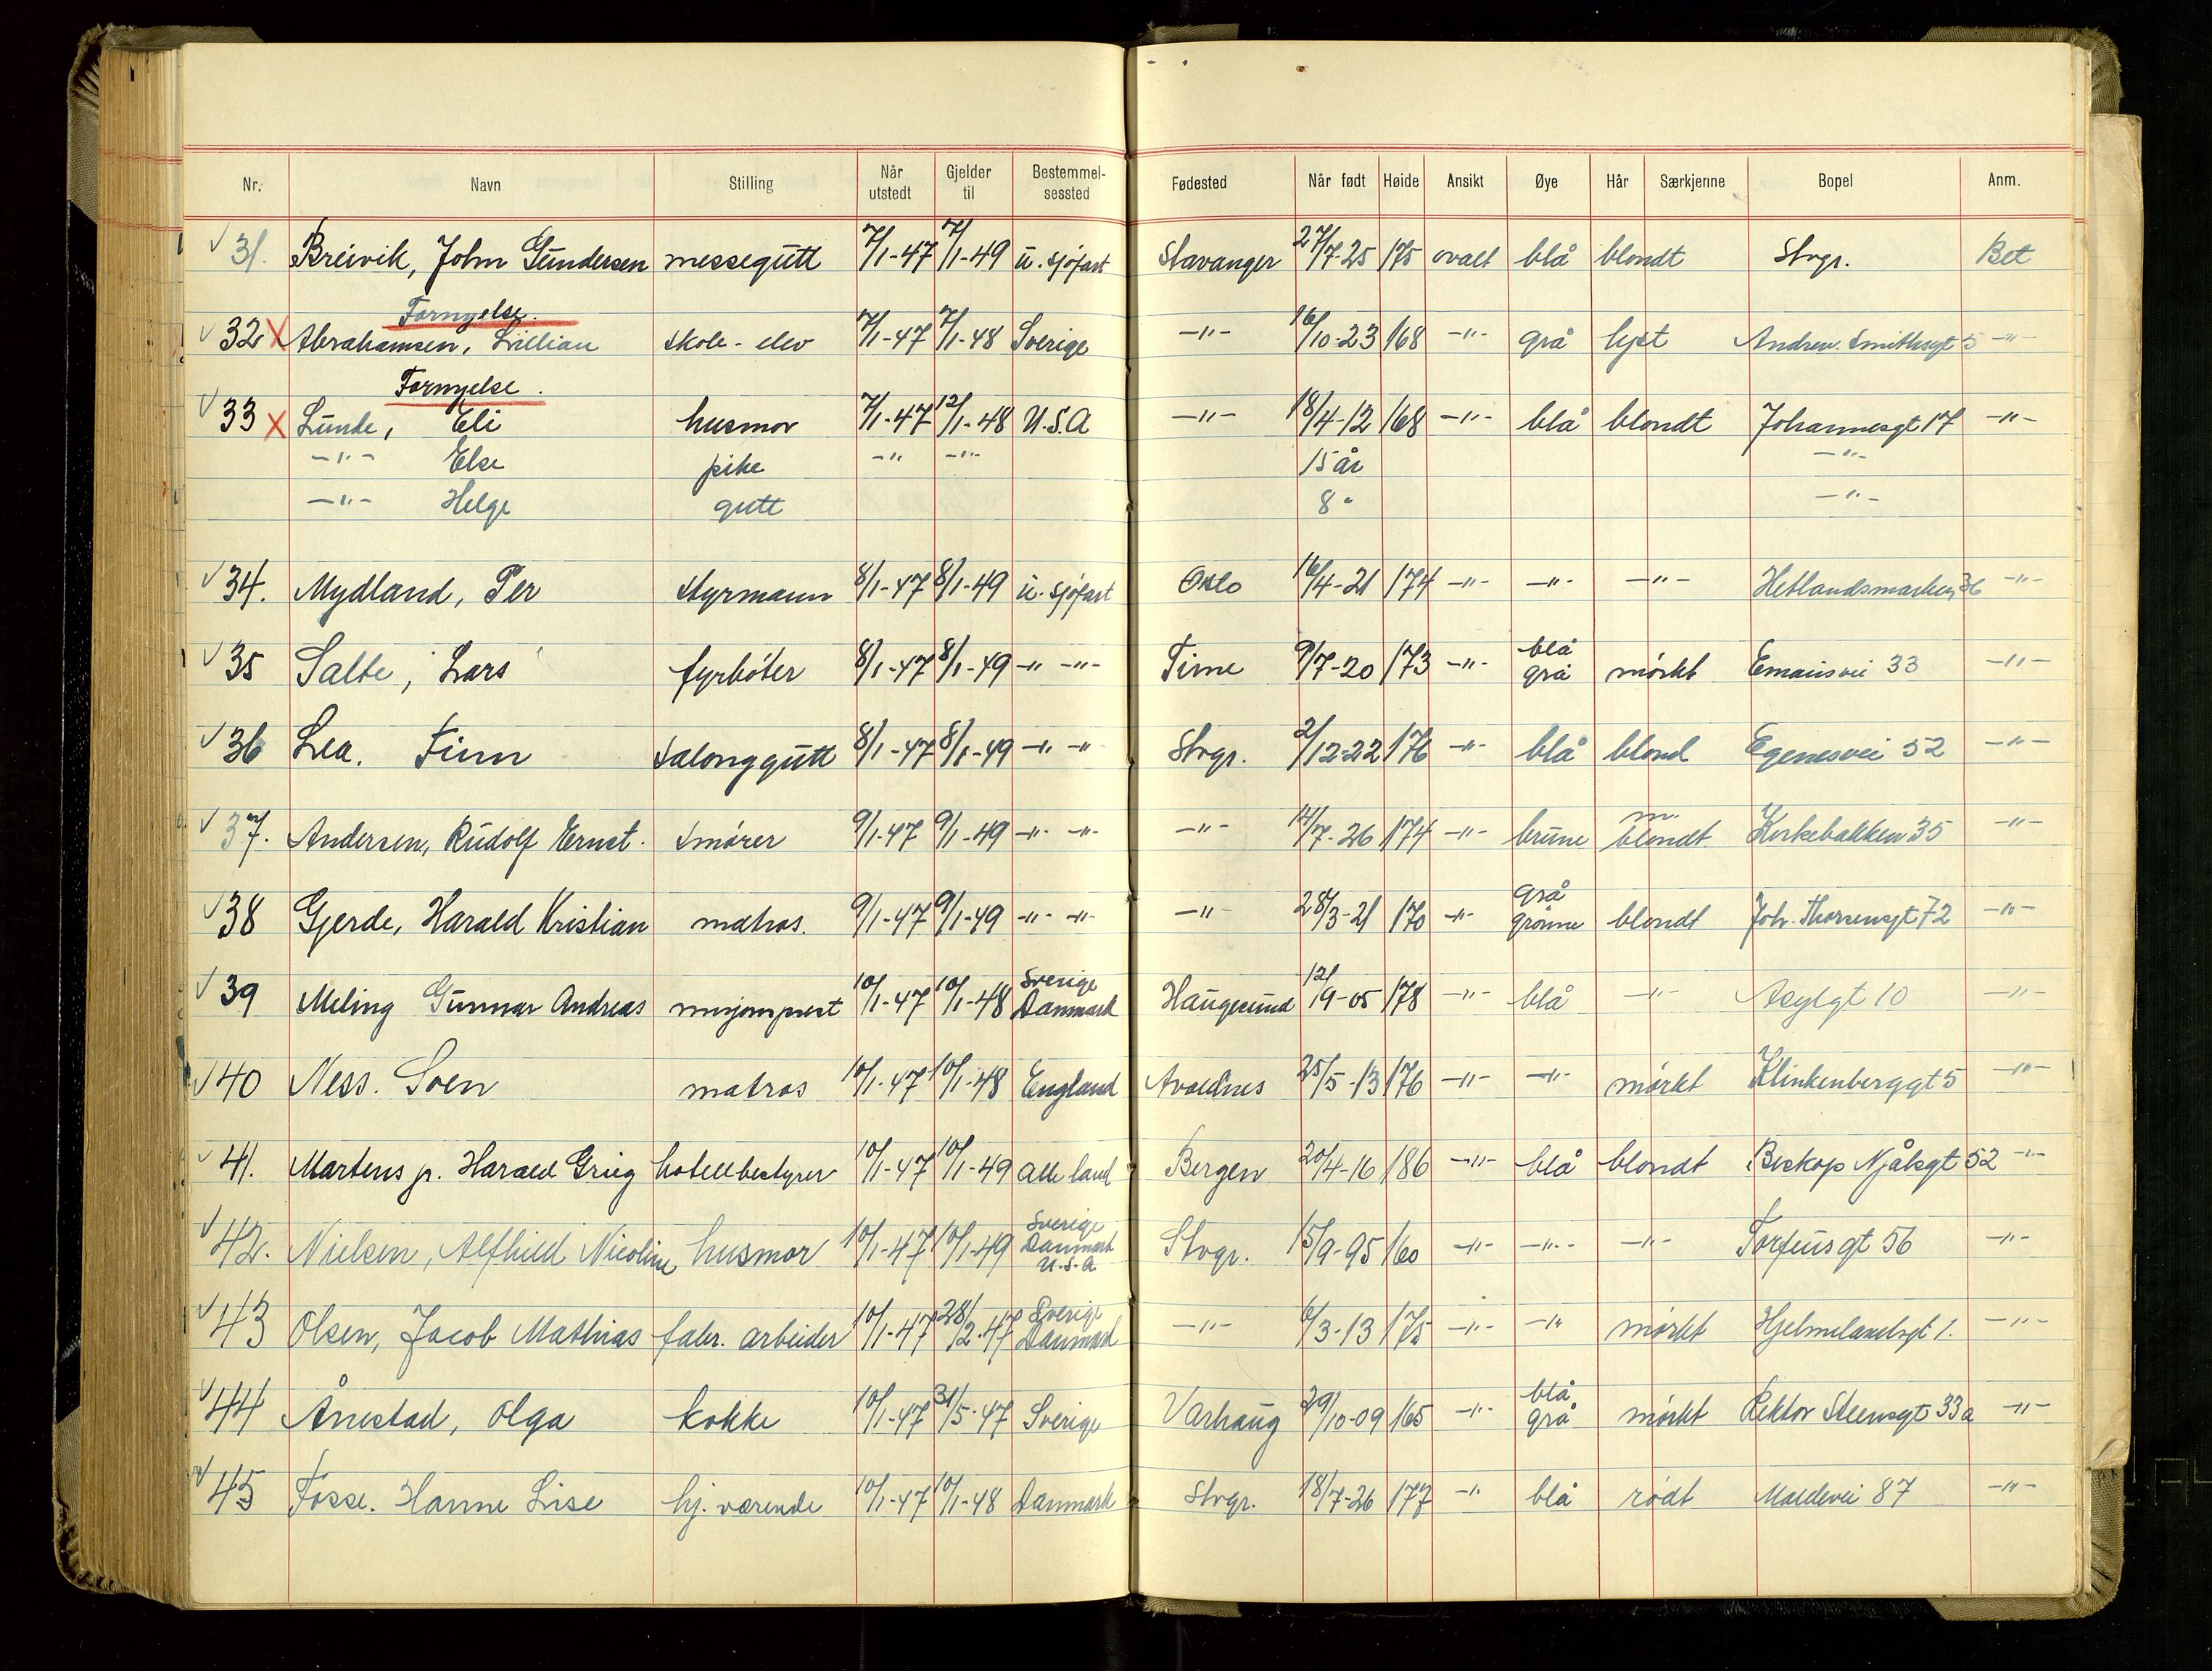 Nr. Navn Stilling Når utstedt Gjelder til Bestemmel-sessted Fødested Når født Høide Ansikt Øye Hår Særkjenne Bopel Anm.
31. Breivik, John Gundersen messegutt 7/1-47 7/1-49 u. sjøfart Stavanger 27/7-25 175 ovalt blå blondt Stvgr. Bet
Fornyelse.
32 X Abrahamsen, Lillian skole-elev 7/1-47 7/1-48 Sverige -"- 16/10-23 168 -"- grå lyst Andrew. Smithsgt 5 -"-
Fornyelse.
33 X Lunde, Eli husmor 7/1-47 12/1-48 U.S.A -"- 18/4-12 168 -"- blå blondt Johannesgt 17 -"-
-"- Else pike -"- -"- 15 år -"-
-"- Helge gutt 8 " -"-
34. Mydland, Per styrmann 8/1-47 8/1-49 u. sjøfart Oslo 16/4-21 174 -"- -"- -"- Hetlandsmarken 36 -"-
35 Salte, Lars fyrbøter 8/1-47 8/1-49 -"- -"- Time 9/7-20 173 -"- blå grå mørkt Emausvei 33 -"-
36 Lea. Finn salonggutt 8/1-47 8/1-49 -"- -"- Stvgr. 2/12-22 176 -"- blå blond Egenesvei 52 -"-
37. Andersen, Rudolf Ernst. smører 9/1-47 9/1-49 -"- -"- -"- 14/7-26 174 -"- brune m. blondt Kirkebakken 35 -"-
38 Gjerde, Harald Kristian matros. 9/1-47 9/1-49 -"- -"- -"- 28/3-21 170 -"- grå grønne blondt Joh. Thorsensgt 72 -"-
39 Meling Gunnar Andreas misjonsprest 10/1-47 10/1-48 Sverige Danmark Haugesund 12/9-05 178 -"- blå -"- Asylgt 10 -"-
40 Ness. Sven matros 10/1-47 10/1-48 England Avaldsnes 25/5-13 176 -"- -"- mørkt Klinkenberggt 5 -"-
41. Martens jr. Harald Grieg hotellbestyrer 10/1-47 10/1-49 alle land Bergen 20/4-16 186 -"- blå blondt Biskop Njålsgt 52 -"-
42. Nielsen, Alfhild Nicoline husmor 10/1-47 10/1-49 Sverige Danmark U.S.A Stvgr. 15/9-95 160 -"- -"- -"- Torfeusgt 56 -"-
43 Olsen, Jacob Mathias fabr. arbeider 10/1-47 28/2-47 Sverige Danmark -"- 6/3-13 175 -"- -"- mørkt Hjelmelandsgt 1. -"-
44 Ånestad, Olga kokke 10/1-47 31/5-47 Sverige Varhaug 29/10-09 165 -"- blå grå mørkt Rektor Steensgt 33a -"-
45 Fosse. Hanne Lise hj. værende 10/1-47 10/1-48 Danmark Stvgr. 18/7-26 177 -"- blå rødt Maldevei 87 -"-